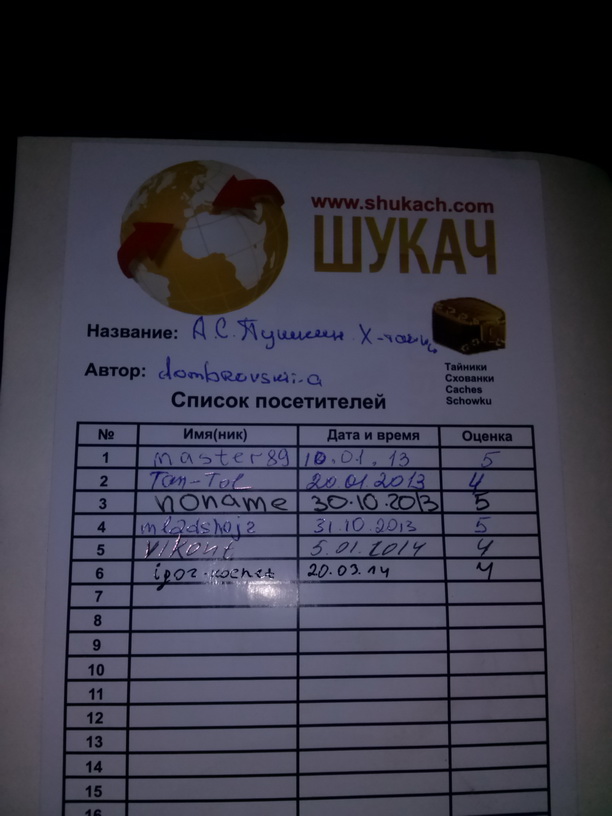 www.shukach.com
ШУКАЧ
Название: А.С. Пушкин. Х-
Автор: dombrovskii-a
Тайники
Схованки
Caches
Schowku
Список посетителей
№ Имя(ник) Дата и время Оценка
1 master89 10.01.13 5
2 Tan-Tol 20.01.2013 4
3 noname 30.10.2013 5
4 31.10.2013 5
5 vikont 5.01.2014 4
6 20.03.14 4
7
8
9
10
11
12
13
14
15
16